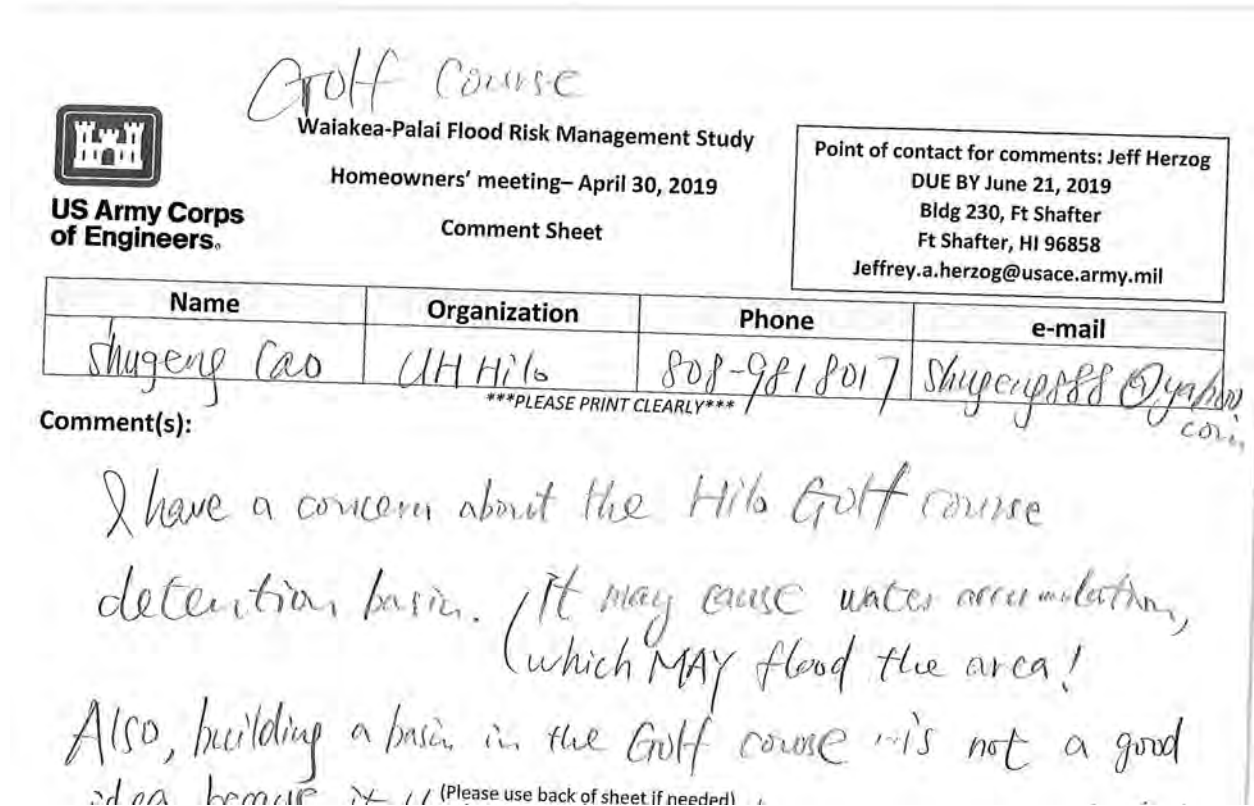 Golf Course
Waiakea-Palai Flood Risk Management Study
Homeowners' meeting– April 30, 2019
Comment Sheet
US Army Corps
of Engineers®
Point of contact for comments: Jeff Herzog
DUE BY June 21, 2019
Bldg 230, Ft Shafter
Ft Shafter, HI 96858
Jeffrey.a.herzog@usace.army.mil
Name Organization Phone e-mail
Shugeng Cao UH Hilo 808-981 8017 Shugeng888@yahoo
com
***PLEASE PRINT CLEARLY***
Comment(s):
I have a concern about the Hilo Golf course
detention basin. It may cause water accumulation,
which MAY flood the area!
Also, building a basin in the Golf course is not a good
idea because it
(Please use back of sheet if needed)